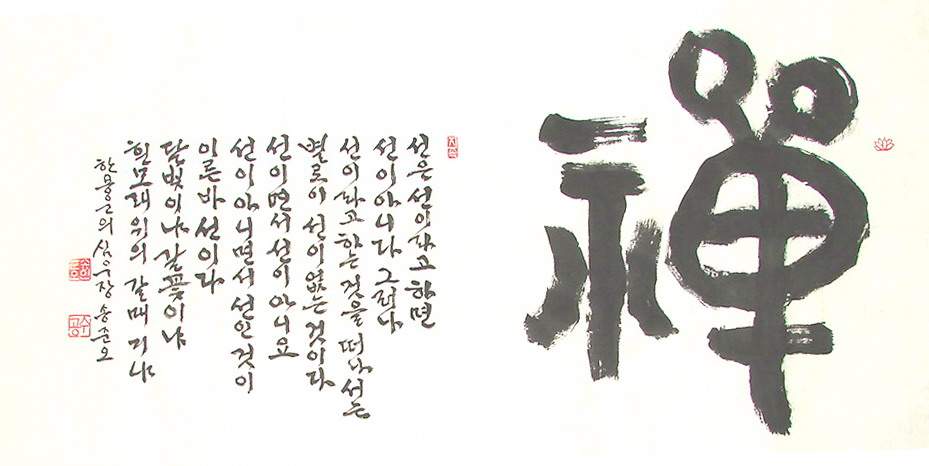 禪
선은 선이라고 하면
선이 아니다 그러나
선이라고 하는 것을 떠나서는
별로이 선이 없는 것이다
선이면서 선이 아니요
선이 아니면서 선인 것이
이른바 선이다
달빛이냐 갈꽃이냐
흰모래 위의 갈매기냐
한용운의 심우장 송준오